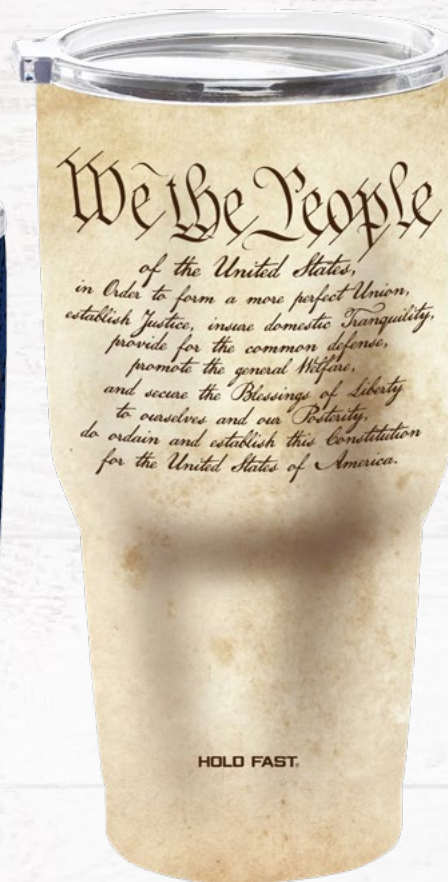 We the People
of the United States,
in Order to form a more perfect Union,
establish Justice, insure domestic Tranquility,
provide for the common defense,
promote the general Welfare,
and secure the Blessings of Liberty
to ourselves and our Posterity,
do ordain and establish this Constitution
for the United States of America.
HOLD FAST®